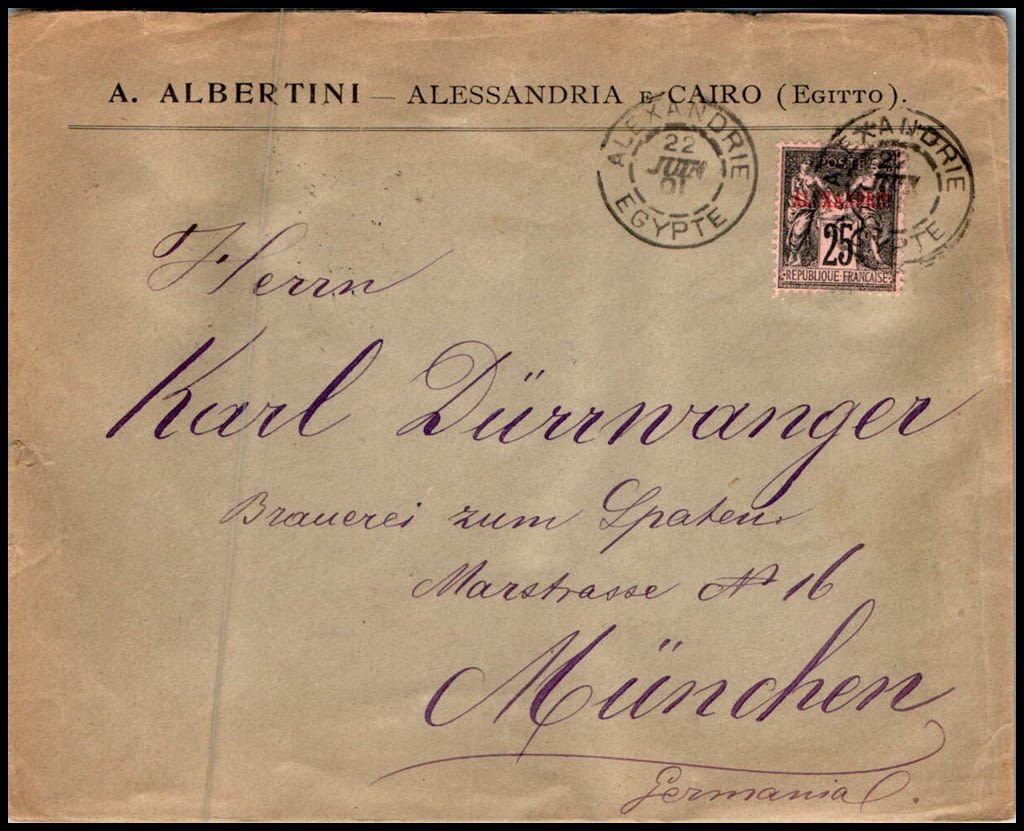 A. ALBERTINI — ALESSANDRIA E CAIRO (EGITTO).
ALEXANDRIE
22
JUIN
01
EGYPTE
ALEXANDRIE
22
JUIN
EGYPTE
POSTES
ALEXANDRIE
25
RÉPUBLIQUE FRANÇAISE
Herrn
Karl Dürrwanger
Brauerei zum Spaten
Marstrasse No 16
München
Germania